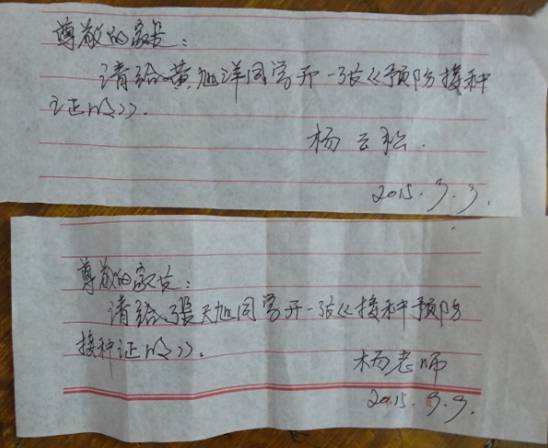 尊敬的家长：
请给黄旭洋同学开一张《预防接种
证明》.
杨云松.
2015.9.9.
尊敬的家长：
请给張天旭同学开一张《接种预防
接种证明》.
杨老师
2015.9.9.